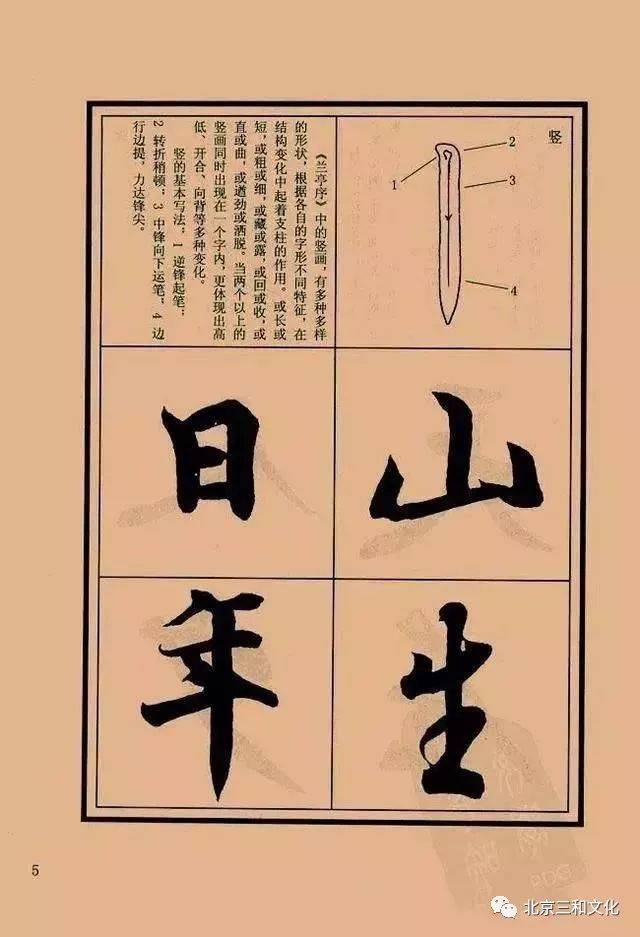 竖
1
2
3
4
《兰亭序》中的竖画，有多种多样
的形状，根据各自的字形不同特征，在
结构变化中起着支柱的作用。或长或
短，或粗或细，或藏或露，或回或收，或
直或曲，或遒劲或洒脱。当两个以上的
竖画同时出现在一个字内，更体现出高
低、开合、向背等多种变化。
竖的基本写法：1 逆锋起笔；
2 转折稍顿；3 中锋向下运笔；4 边
行边提，力达锋尖。
山
生
日
年
5
PDG
北京三和文化